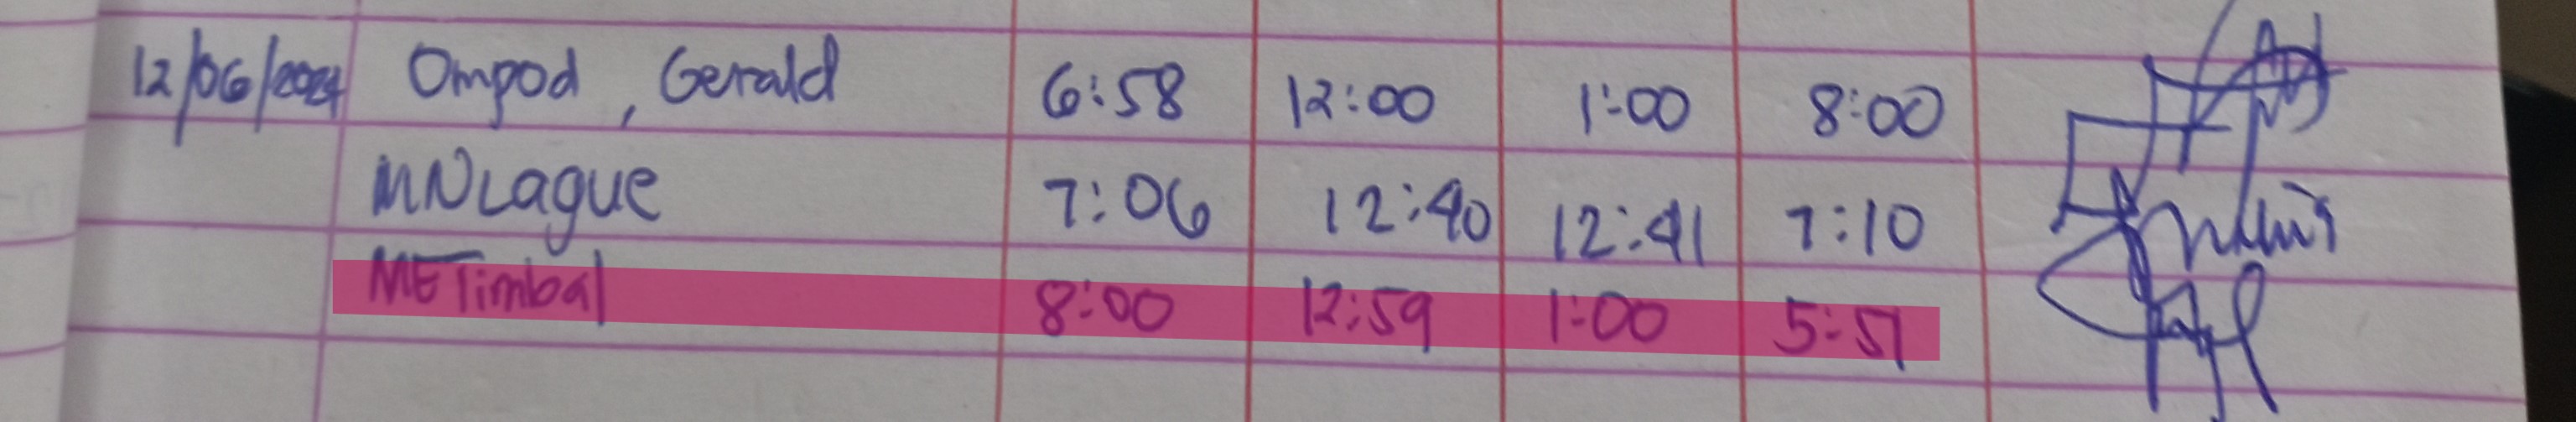 12/06/2024 Ompod, Gerald 6:58 12:00 1:00 8:00
MNLague 7:06 12:40 12:41 7:10
METimbal 8:00 12:59 1:00 5:51